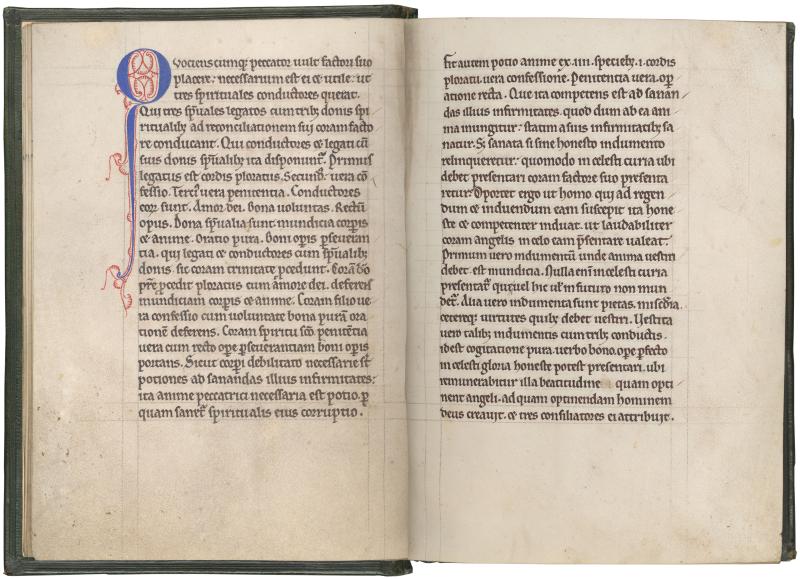 Quociens cumq; peccator vult factori suo
placere. necessarium est ei ⁊ utile. ut
tres spirituales conductores querat.
Qui tres spūales legatos cum trib; donis spi
ritualib; ad reconciliationem sui coram facto
re conducant. Qui conductores ⁊ legati cū
suis donis spūalib; ita disponunt̄. Primus
legatus est cordis ploratus. Secund᷒ vera cō
fessio. Terci᷒ vera penitentia. Conductores
eoꝝ sunt. Amor dei. Bona voluntas. Rectū
opus. Dona spūalia sunt mundicia corꝑis
⁊ anime. Oratio pura. Boni oꝑis ꝑseveran
tia. qui legati ⁊ conductores cum spūalib;
donis sic coram trinitate ꝓcedunt. Corā dō
pr̄e ꝓcedit ploratus cū amore dei. deferēs
mundiciam corꝑis ⁊ anime. Coram filio ve
ra confessio cum voluntate bona purā ora
tionē deferens. Coram spiritu sc̄o penitētia
vera cum recto oꝑe ꝑseverantiam boni oꝑis
portans. Sicut corꝑi debilitato necessarie st̄
potiones ad sanandas illius infirmitates:
ita anime peccatrici necessaria est potio. ꝑ
quam sanet̄ spiritualis eius corruptio.
Fit autem potio anime ex .iiii. specieb;. i. cordis
ploratu. vera confessione. Penitentia vera. oꝝ
atione recta. Que ita competens est ad sanan
das illius infirmitates. quod dum ab ea ani
ma mungitur. statim a suis infirmitatib; sa
natur. Si sanata si sine honesto indumento
relinqueretur. quomodo in celesti curia ubi
debet presentari coram factore suo presenta
retur. Oportet ergo ut homo qui ad regen
dum ⁊ induendum eam suscepit ita hone
ste ⁊ competenter induat. ut laudabiliter
coram angelis in celo eam ꝓsentare valeat.
Primum vero indumentū unde anima vestiri
debet. est mundicia. Nulla eni in celesti curia
presentat̄ que vel hic vel in futuro non mun
det̄. Alia vero indumenta sunt pietas. mis̄dia.
cetereq; virtutes quib; debet vestiri. Vestita
vero talib; indumentis cum trib; conductis.
idest cogitatione pura. verbo bono. oꝑe ꝑfecto
in celesti gloria honeste potest presentari. ubi
remunerabitur illa beatitudine quam opti
nent angeli. ad quam optinendam hominem
deus creavit. ⁊ tres consiliatores ei attribuit.